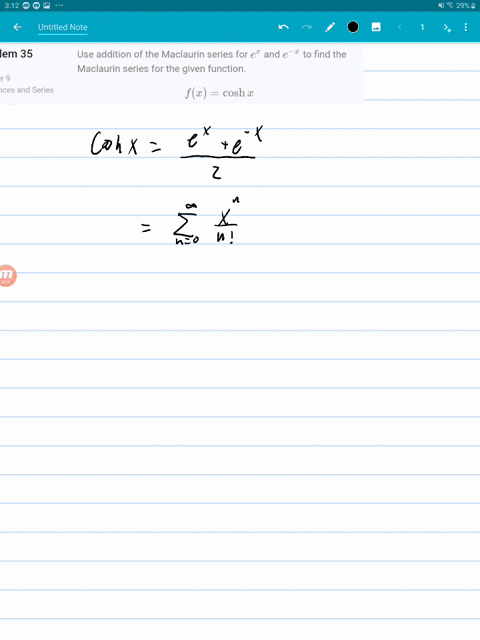 3:12 ... 29%
Untitled Note
1
lem 35
er 9
nces and Series
Use addition of the Maclaurin series for e^x and e^{-x} to find the
Maclaurin series for the given function.
f(x) = cosh x
Cosh x = \frac{e^x + e^{-x}}{2}
= \sum_{n=0}^{\infty} \frac{x^n}{n!}